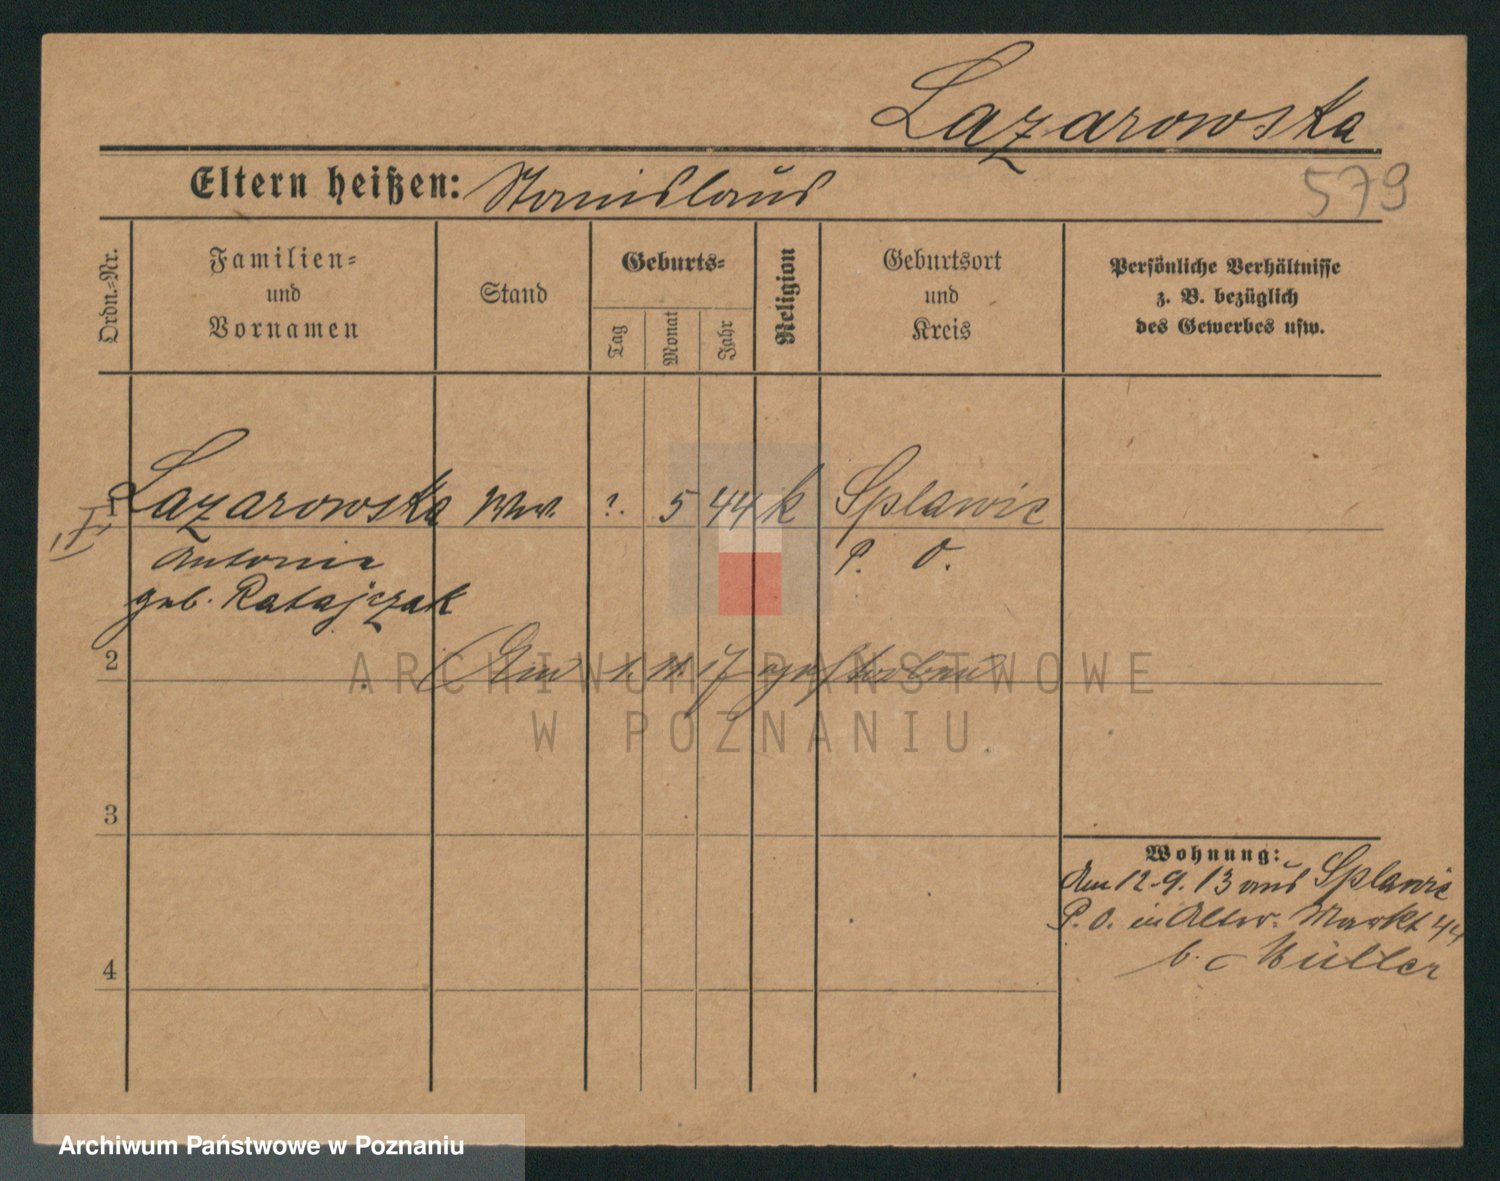 Lazarowska
Eltern heißen: Stanislaus
579
Ordn.-Nr.
Familien-
und
Vornamen
Stand
Geburts-
Tag
Monat
Jahr
Religion
Geburtsort
und
Kreis
Persönliche Verhältnisse
z. B. bezüglich
des Gewerbes usw.
Lazarowska Ww. ?. 5 44 k Splawie
Antonie P. O.
geb. Ratajczak
2
Am 1. 11. 17 gestorben
ARCHIWUM PAŃSTWOWE
W POZNANIU
3
Wohnung:
Am 12.9.13 aus Splawie
P. O. in Alter Markt 44
b. Müller
4
Archiwum Państwowe w Poznaniu